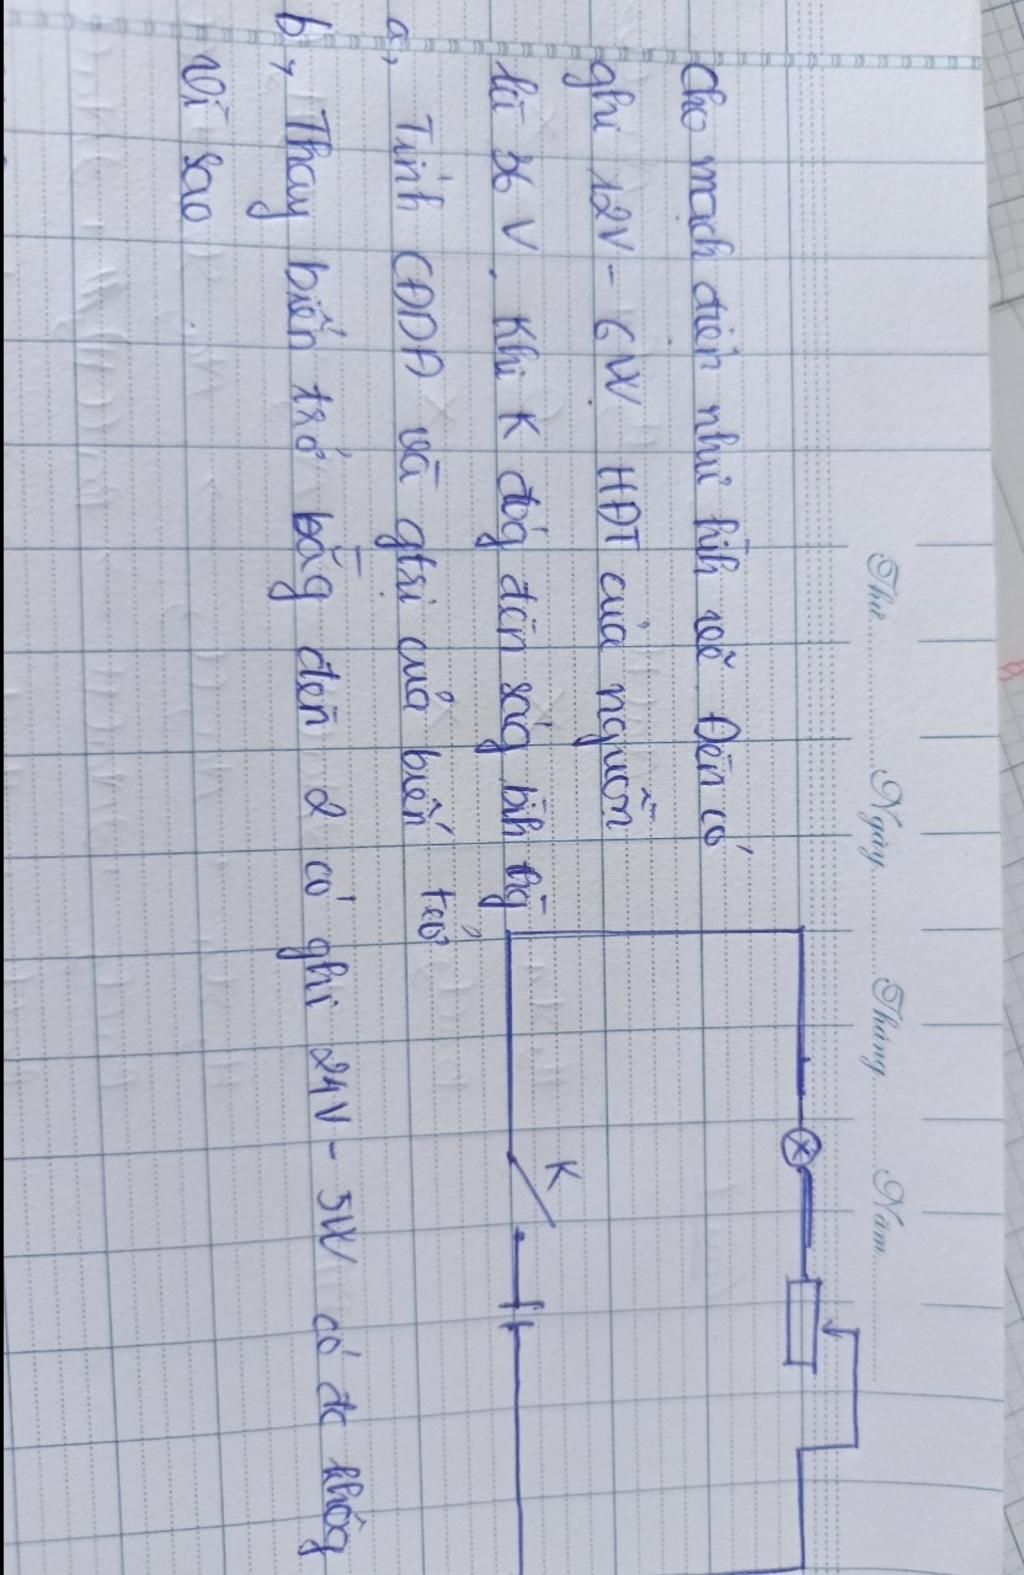 Thứ Ngày Tháng Năm
Cho mạch điện như hìh vẽ Đèn có
ghi 12V - 6W. HĐT của nguồn
là 36 V. Khi K đóg đèn ság bìh thg
a, Tính CĐDĐ và gtrị của biến trở
b, Thay biến trở bằg đèn 2 có ghi 24V - 3W có đc khôg
Vì sao
K